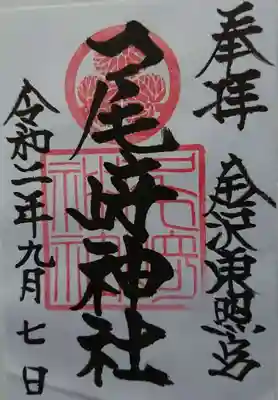 奉拝
金沢東照宮
尾﨑神社
令和二年九月七日